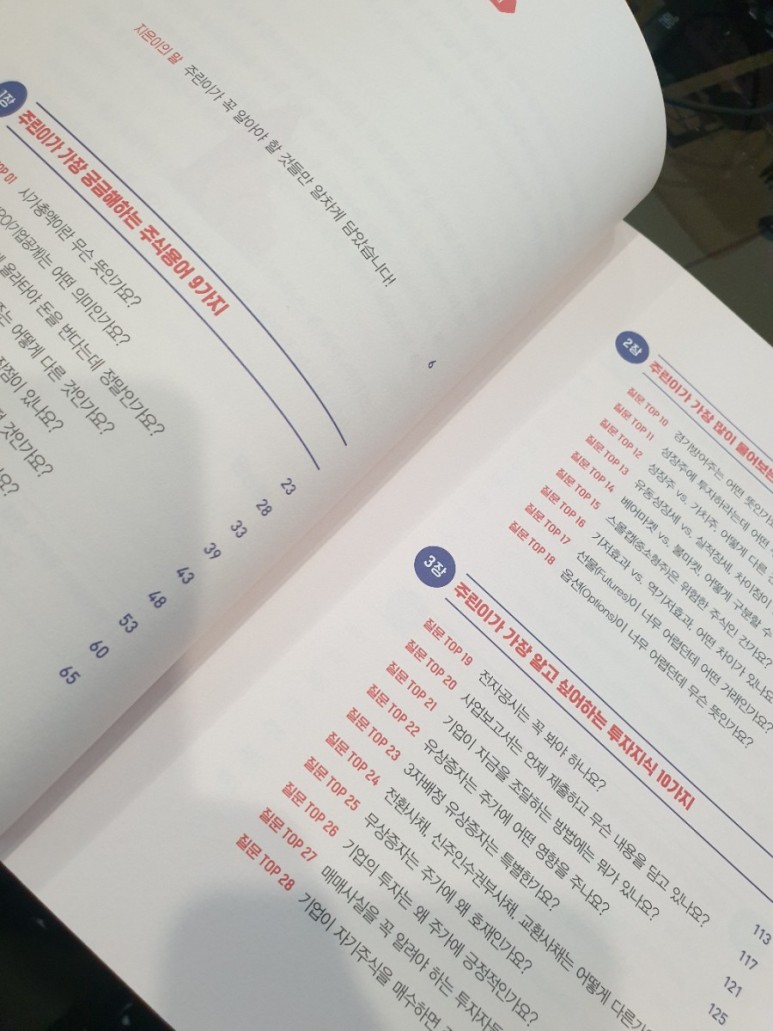 지은이의 말 주린이가 꼭 알아야 할 것들만 알차게 담았습니다! 6
1장 주린이가 가장 궁금해하는 주식용어 9가지
TOP 01 시가총액이란 무슨 뜻인가요? 23
기업공개는 어떤 의미인가요? 28
올라타야 돈을 번다는데 정말인가요? 33
어떻게 다른 것인가요? 39
있나요? 43
것인가요? 48
53
60
65
2장 주린이가 가장 많이 물어보는
질문 TOP 10 경기방어주는 어떤 뜻인가요
질문 TOP 11 성장주에 투자하라는데 어떤
질문 TOP 12 성장주 vs. 가치주, 어떻게 다른
질문 TOP 13 유동성장세 vs. 실적장세, 차이점이
질문 TOP 14 베어마켓 vs. 불마켓, 어떻게 구분할 수
질문 TOP 15 스몰캡(중소형주)은 위험한 주식인 건가요?
질문 TOP 16 기저효과 vs. 역기저효과, 어떤 차이가 있나요?
질문 TOP 17 선물(Futures)이 너무 어렵던데 어떤 거래인가요?
질문 TOP 18 옵션(Options)이 너무 어렵던데 무슨 뜻인가요?
3장 주린이가 가장 알고 싶어하는 투자지식 10가지
질문 TOP 19 전자공시는 꼭 봐야 하나요?
질문 TOP 20 사업보고서는 언제 제출하고 무슨 내용을 담고 있나요? 113
질문 TOP 21 기업이 자금을 조달하는 방법에는 뭐가 있나요? 117
질문 TOP 22 유상증자는 주가에 어떤 영향을 주나요? 121
질문 TOP 23 3자배정 유상증자는 특별한가요? 125
질문 TOP 24 전환사채, 신주인수권부사채, 교환사채는 어떻게 다른가
질문 TOP 25 무상증자는 주가에 왜 호재인가요?
질문 TOP 26 기업의 투자는 왜 주가에 긍정적인가요?
질문 TOP 27 매매사실을 꼭 알려야 하는 투자자들
질문 TOP 28 기업이 자기주식을 매수하면